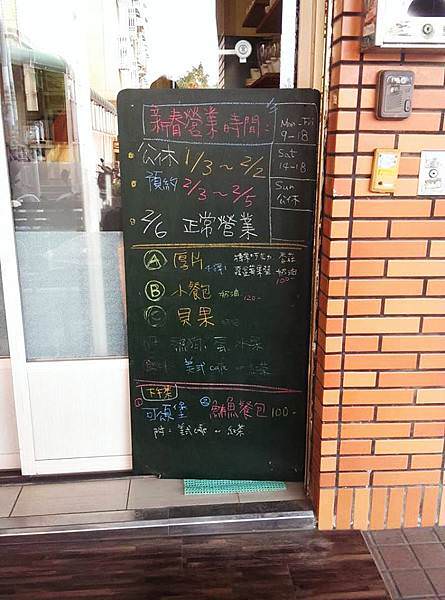 新春營業時間:
Mon-Fri
9-18
Sat
14-18
Sun
公休
公休 1/3~2/2
預約 2/3~2/5
2/6 正常營業
A 厚片
奶油
100-
B 小餐包 奶油 120-
C 貝果
美式cafe or 紅茶
下午茶
可頌堡
鮪魚餐包 100-
附:美式cafe or 紅茶